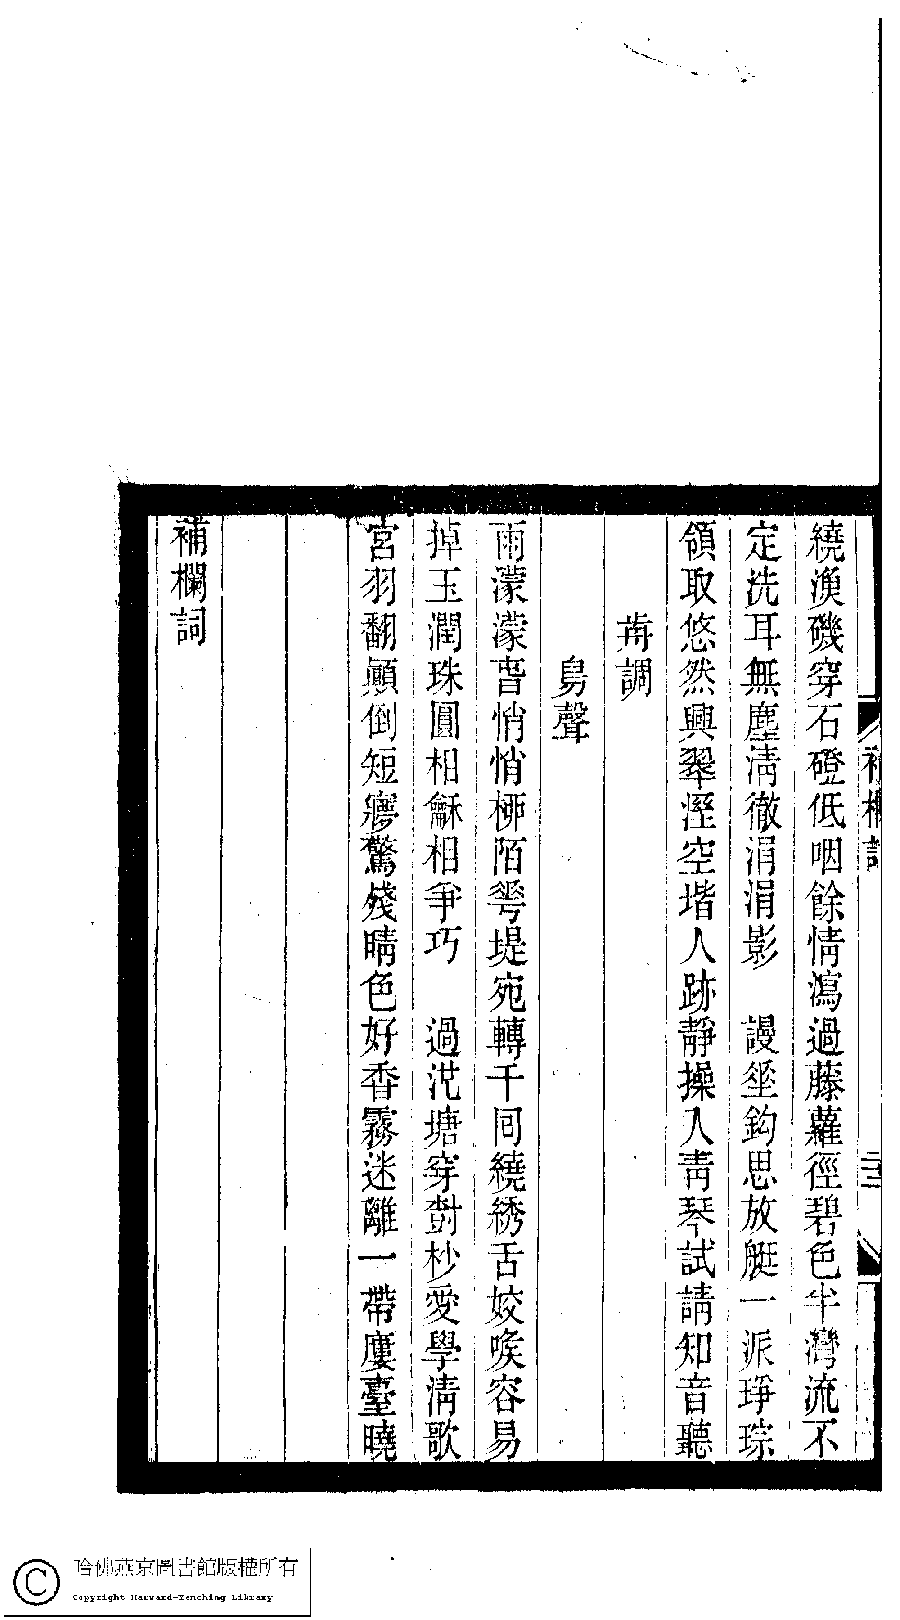 繞漁磯穿石磴低咽餘情瀉過藤蘿徑碧色半灣流不
定洗耳無塵淸徹涓涓影　謾坐鈎思放艇一派琤琮
領取悠然興翠溼空堦人跡靜操入靑琴試請知音聽
歬調
舄聲
雨濛濛𣈆悄悄桺陌䔢堤宛轉千回繞綉舌姣喉容易
掉玉潤珠圓相龢相爭巧　過𣲖塘穿樹杪愛學淸歌
宮羽翻顚倒短㝱驚殘晴色好香霧迷離一帶廔臺曉
補欄詞
補欄詞
二十三
哈佛燕京圖書館版權所有
Copyright Harvard-Yenching Library